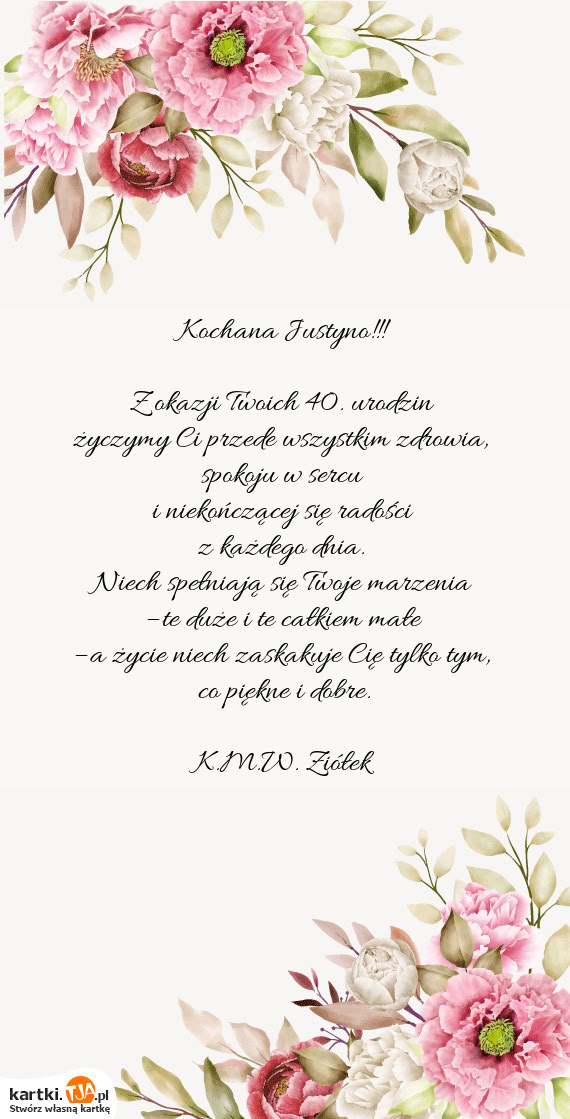 Kochana Justyno!!!
Z okazji Twoich 40. urodzin
życzymy Ci przede wszystkim zdrowia,
spokoju w sercu
i niekończącej się radości
z każdego dnia.
Niech spełniają się Twoje marzenia
–te duże i te całkiem małe
–a życie niech zaskakuje Cię tylko tym,
co piękne i dobre.
K.M.W. Ziółek
kartki.TJA.pl
Stwórz własną kartkę